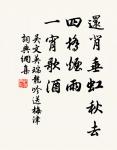 還背垂虹秋去
四橋煙雨
一宵歌酒
吳文英瑞龍吟送梅津
詞典網集